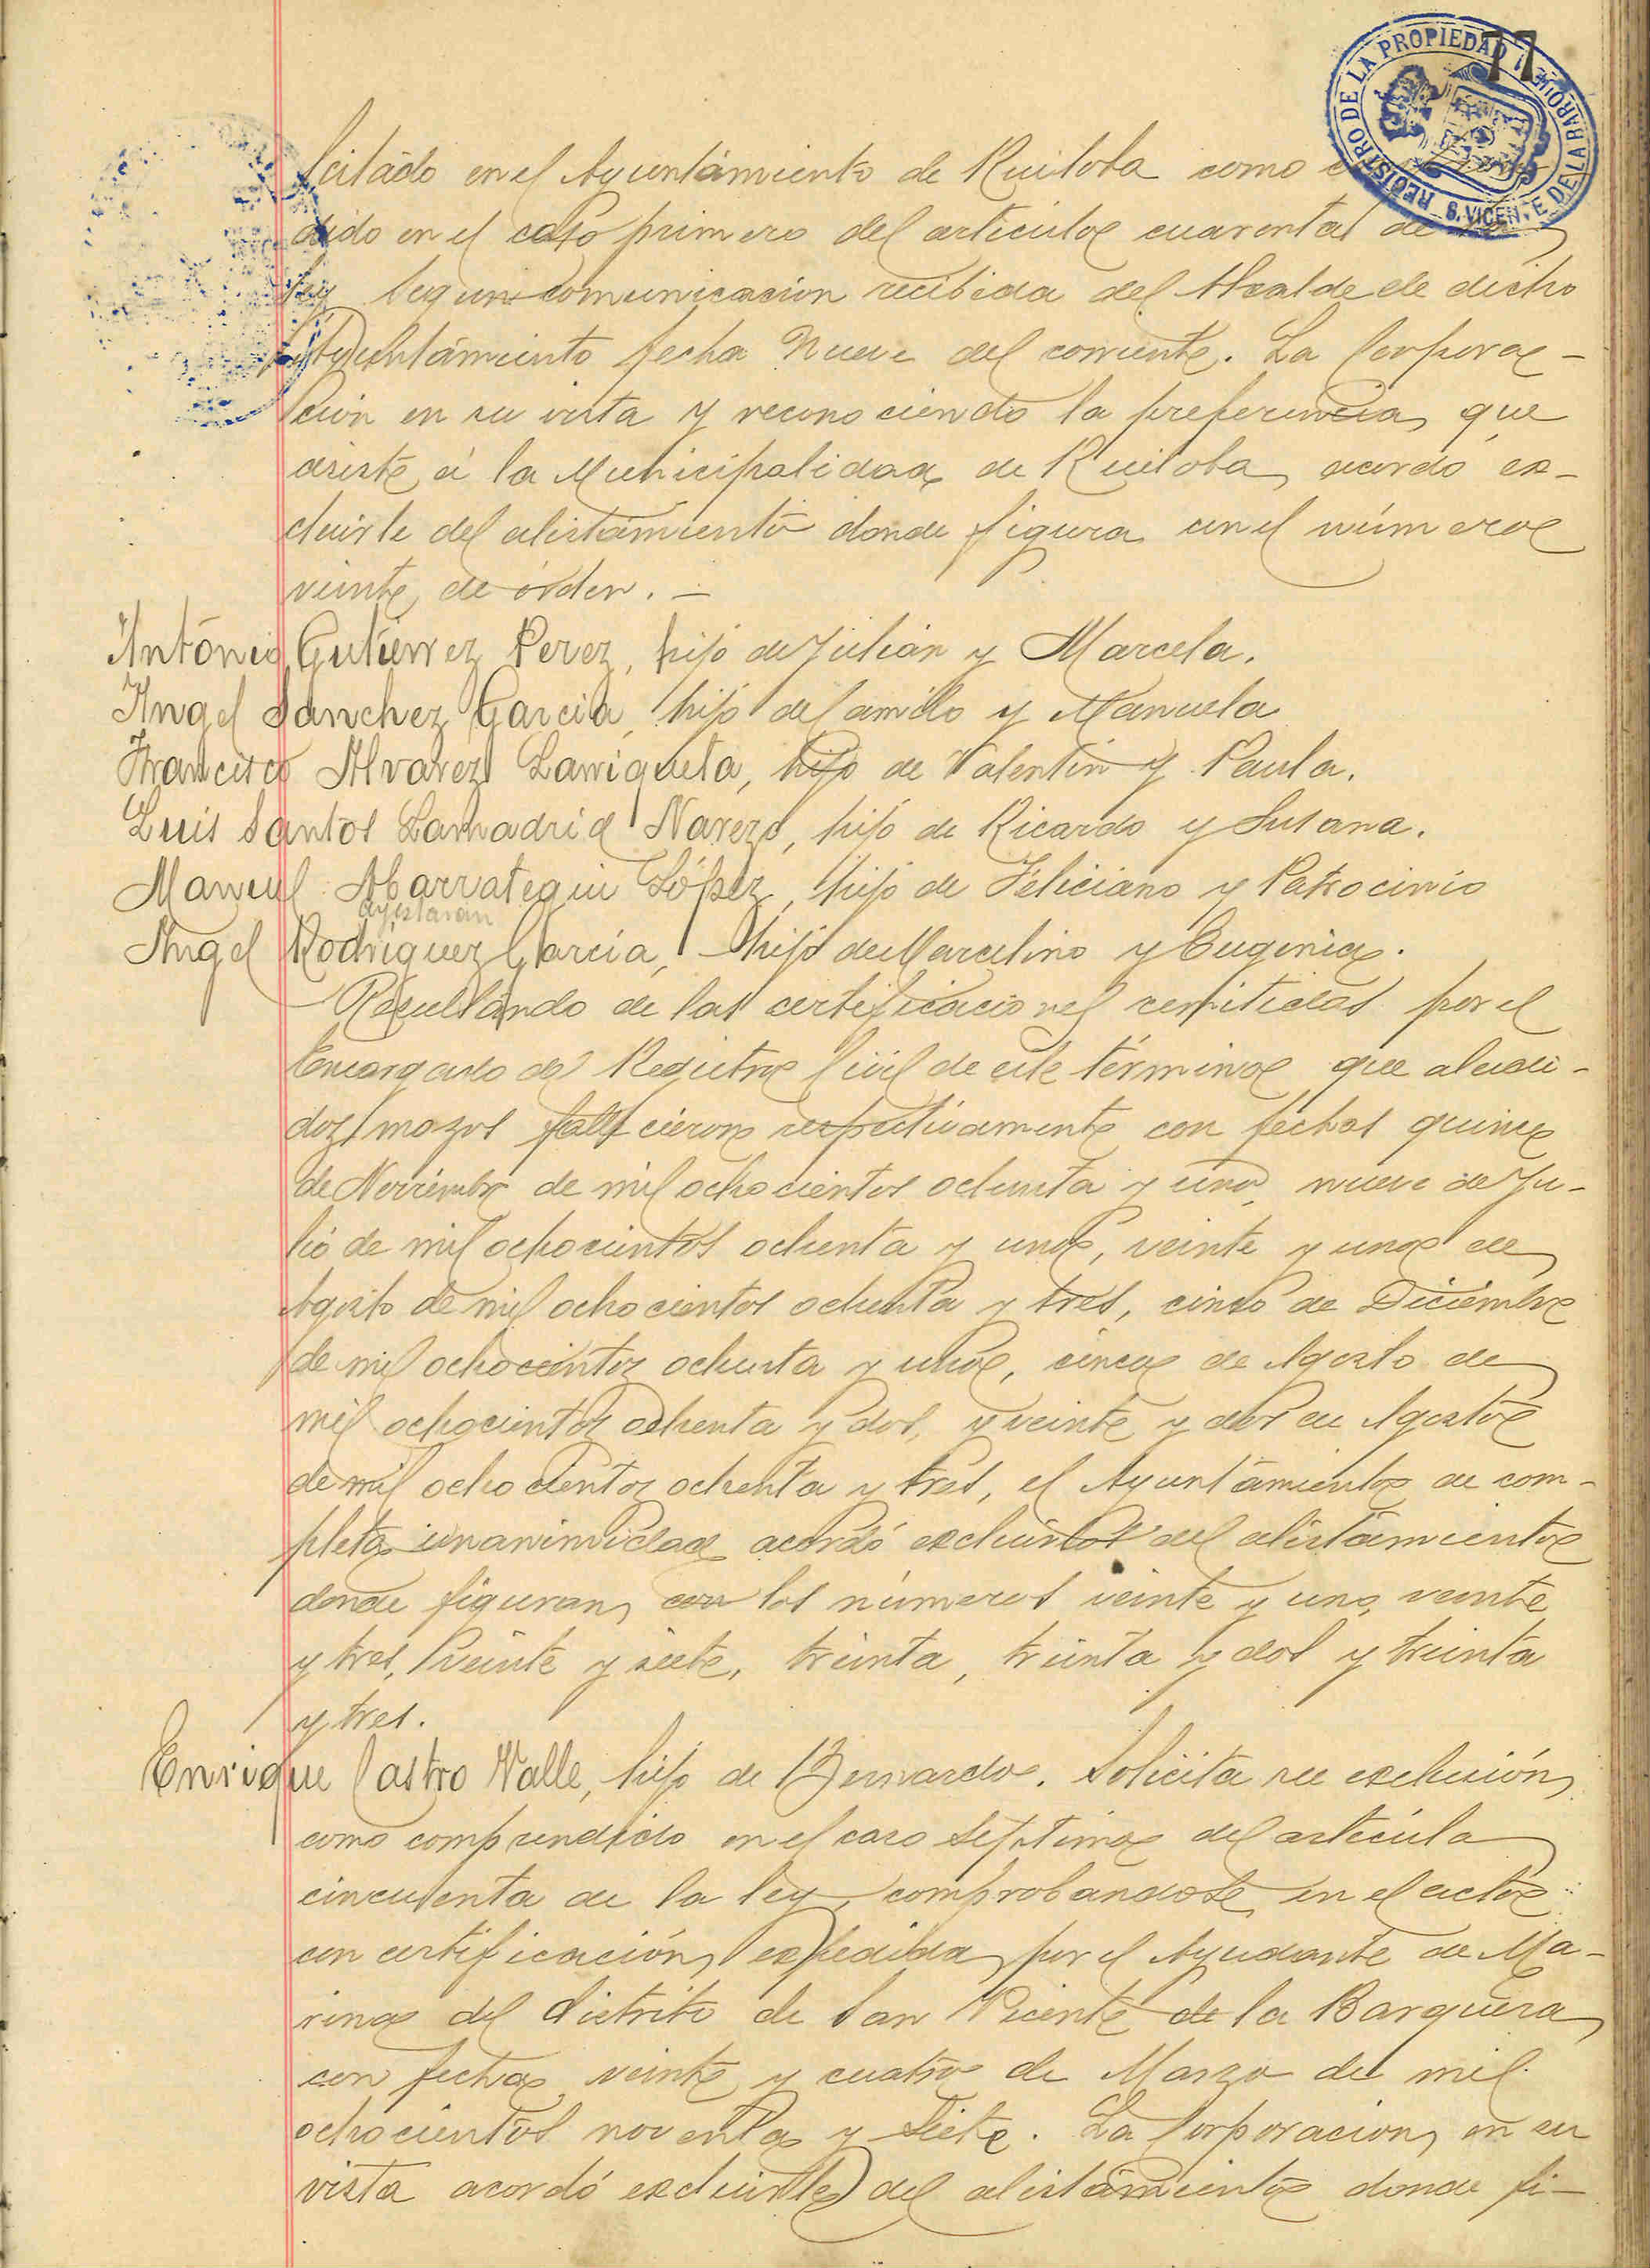 77
REGISTRO DE LA PROPIEDAD
S. VICENTE DE LA BARQUERA
citado en el Ayuntamiento de Ruiloba como
dido en el caso primero del articulo cuarenta de
ley segun comunicacion recibida del Alcalde de dicho
Ayuntamiento fecha nueve del corriente. La Corpora-
cion en su vista y reconociendo la preferencia que
asiste á la Municipalidad de Ruiloba acordó ex-
cluirle del alistamiento donde figura con el número
veinte de órden. -
Antonio Gutierrez Perez, hijo de Julián y Marcela.
Angel Sanchez Garcia, hijo de Camilo y Manuela
Francisco Alvarez Larriqueta, hijo de Valentin y Paula.
Luis Santos Lamadrid Narezo, hijo de Ricardo y Susana.
Manuel Abarrategui López, hijo de Feliciano y Patrocinio
Ayestaran
Angel Rodríguez Garcia, hijo de Marcelino y Eugenia.
Resultando de las certificaciones remitidas por el
Encargado del Registro Civil de este término que aludi-
doz mozos fallecieron respectivamente con fechas quince
de Noviembre de mil ochocientos ochenta y uno, nueve de Ju-
lio de mil ochocientos ochenta y uno, veinte y uno de
Agosto de mil ochocientos ochenta y tres, cinco de Diciembre
de mil ochocientoz ochenta y uno, cinco de Agosto de
mil ochocientos ochenta y dos, y veinte y dos de Agosto
de mil ochocientoz ochenta y tres, el Ayuntamiento de com-
pleta unanimidad acordó excluirlos del alistamiento
donde figuran con los números veinte y uno, veinte
y tres, veinte y siete, treinta, treinta y dos y treinta
y tres.
Enrique Castro Valle, hijo de Bernardo. Solicita su exclusión
como comprendido en el caso septimo del artículo
cincuenta de la ley, comprobandose en el acto
con certificación expedida por el Ayudante de Ma-
rina del distrito de San Vicente de la Barquera
con fecha veinte y cuatro de Marzo de mil
ochocientos noventa y siete. La Corporacion en su
vista acordó excluirle del alistamiento donde fi-